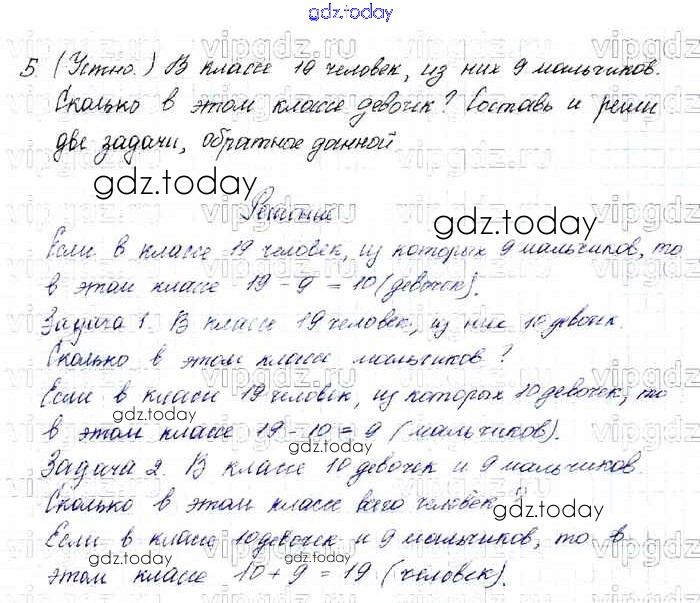 gdz.today
5 (Устно.) В классе 19 человек, из них 9 мальчиков.
Сколько в этом классе девочек? Составь и реши
две задачи, обратные данной
gdz.today
Решение
gdz.today
Если в классе 19 человек, из которых 9 мальчиков, то
в этом классе 19 - 9 = 10 (девочек).
Задача 1. В классе 19 человек, из них 10 девочек.
Сколько в этом классе мальчиков?
Если в классе 19 человек, из которых 10 девочек, то
gdz.today
в этом классе 19 - 10 = 9 (мальчиков).
Задача 2. В классе 10 девочек и 9 мальчиков.
gdz.today
Сколько в этом классе всего человек?
Если в классе 10 девочек и 9 мальчиков, то в
gdz.today
этом классе 10 + 9 = 19 (человек).
gdz.today
vipgdz.ru